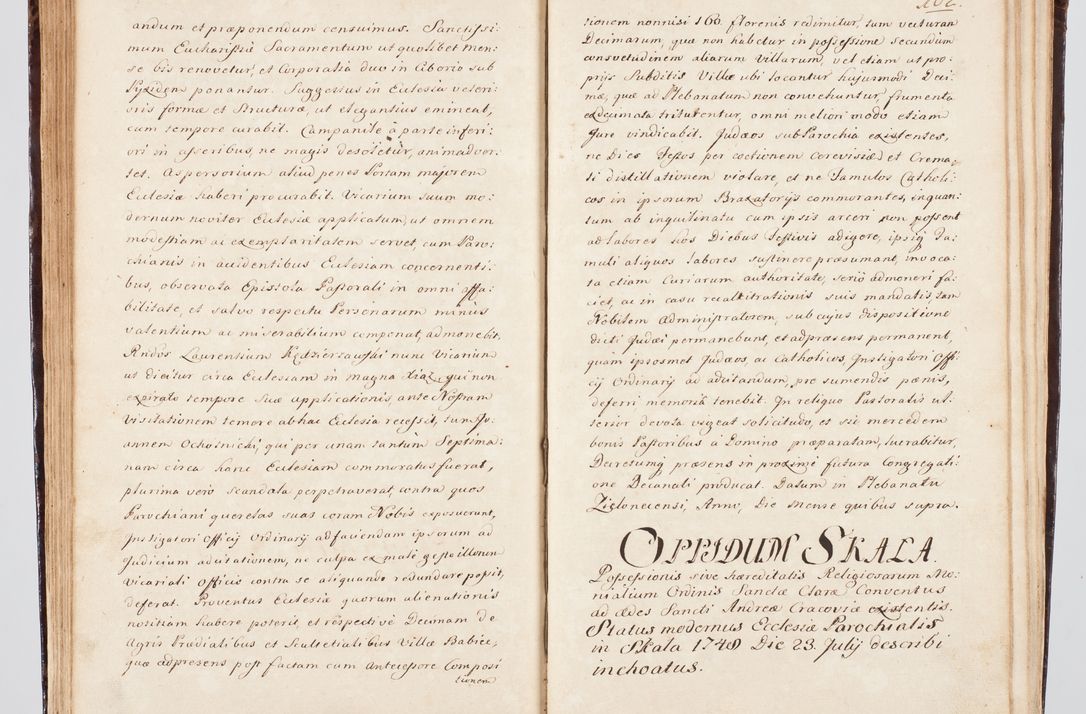 andum et præponendum censuimus. Sanctissi:
mum Eucharistiæ Sacramentum ut quolibet men:
se bis renovetur, et Corporalia duo in Ciborio sub
Pyxidem ponantur. Suggestus in Ecclesia veteri:
oris formæ et structuræ, ut elegantius emineat,
cum tempore curabit. Campanile à parte inferi:
ori in asseribus, ne magis desoletur, animadver:
tet. Aspersorium aliud penes Portam majorem
Ecclesiæ haberi procurabit. Vicarium suum mo:
dernum noviter Ecclesiæ applicatum, ut omnem
modestiam ac exemplaritatem servet, cum Paro:
chianis in accidentibus Ecclesiam concernenti:
bus, observata Epistola Pastorali in omni affa:
bilitate, et salvo respectu Personarum minus
valentium ac miserabilium componat, admonebit.
Rndos Laurentium Kędzierzawski nunc Vicarium
ut dicitur circa Ecclesiam in Magna Xiąz, qui non
expirato tempore suæ applicationis, ante Nostram
Visitationem temere ab hac Ecclesia recessit, tum Jo:
annem Ochotnicki, qui per unam tantum Septima:
nam circa hanc Ecclesiam commoratus fuerat,
plurima vero scandala perpetraverat, contra quos
Parochiani querelas suas coram Nobis exposuerunt,
Instigatori Officij Ordinarij ad faciendam ipsorum ad
Judicium adcitationem, ne culpa ex male gestis illorum
Vicariali Officio contra se aliquando redundare possit,
deferat. Proventus Ecclesiæ quorum alienationis
notitiam habere poterit, et respectivè Decimam de
Agris Prædialibus et Scultetialibus Villæ Babice,
quæ adpræsens post factam cum Antecessore Composi
tionem
tionem nonnisi 160 florenis redimitur, tum vecturam
Decimarum, quæ non habetur in possessione secundum
consvetudinem aliarum Villarum, vel etiam ut pro:
prijs Subditis Villæ ubi locantur hujusmodi Deci:
mæ, quæ ad Plebanatum non convehantur, frumenta
exdecimata triturentur, omni meliori modo etiam
Jure vindicabit. Judæos sub Parochia existentes,
ne Dies Festos per coctionem Cerevisiæ et Crema:
ti distillationem violare, et ne Famulos Catholi:
cos in ipsorum Braxatorijs commorantes, inquan:
tum ab inquilinatu cum ipsis arceri non possent
ad labores hos Diebus festivis adigere, ipsiq Fa:
muli aliquos labores sustinere præsumant, invoca:
ta etiam Curiarum authoritate, serio admoneri fa:
ciet, ac in casu recalcitrationis suis mandatis, tam
Nobilem Administratorem, sub cujus dispositione
dicti Judæi permanebunt, et adpræsens permanent,
quam ipsosmet Judæos, ac Catholicos, Instigatori Offi:
cij Ordinarij ad adcitandum, pro sumendis pœnis,
deferri memoriâ tenebit. In reliquo Pastoralis ul:
terior devota vigeat solicitudo, et sic mercedem
bonis Pastoribus à Domino præparatam, lucrabitur,
Decretumq præsens in proximè futura Congregati:
one Decanali producat. Datum in Plebanatu
Zielonecensi, Anno, Die Mense quibus supra.
OPPIDUM SKAŁA.
Possessionis sive hæreditatis Religiosarum Mo:
nialium Ordinis Sanctæ Claræ Conventus
ad ædes Sancti Andreæ Cracoviæ existentis.
Status modernus Ecclesiæ Parochialis
in Skała 1748 Die 23. Julij describi
inchoatus.